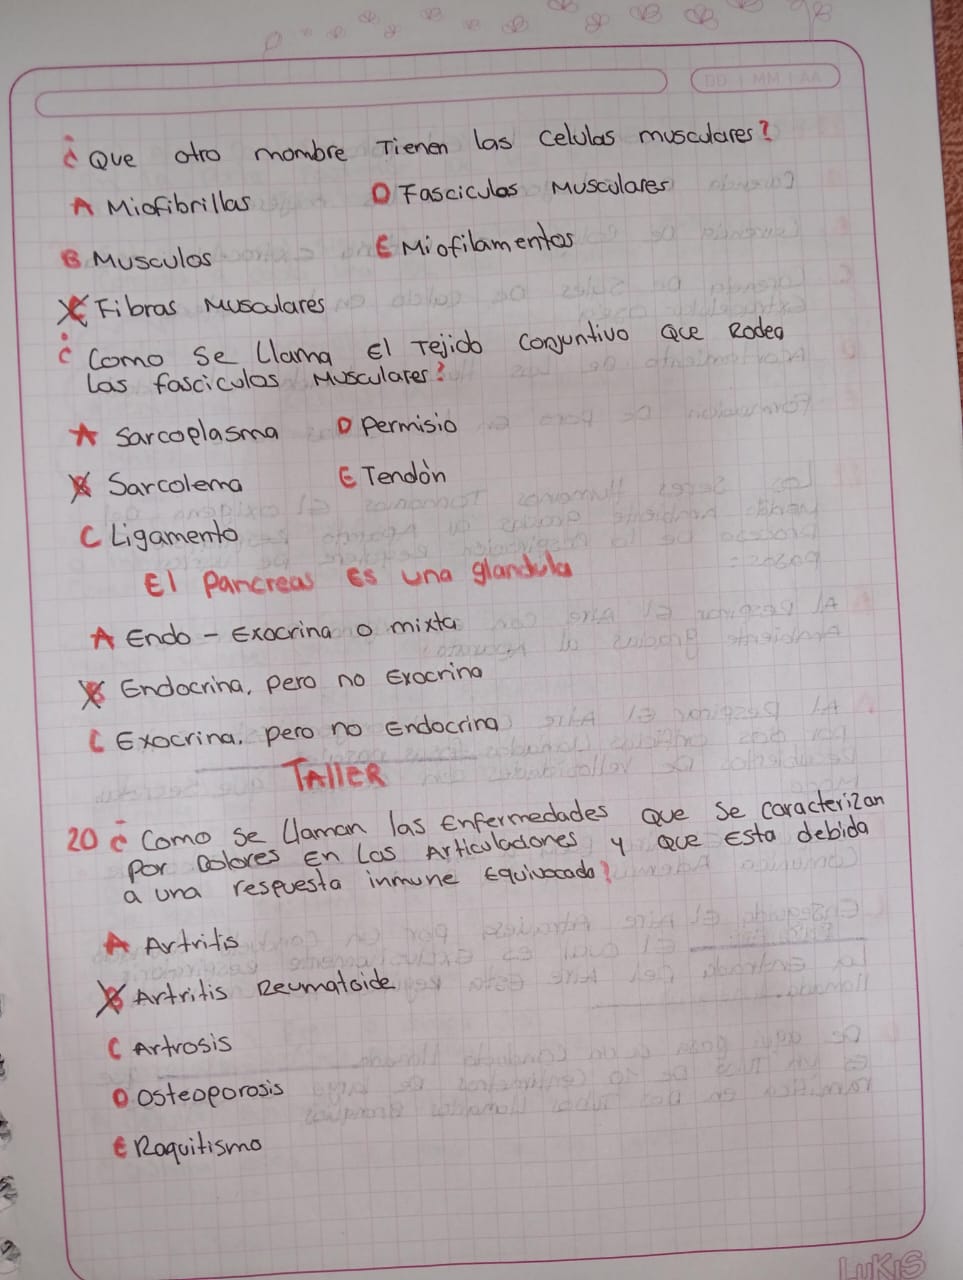 DD | MM | AA
¿Que otro mombre Tienen las Celulas musculares?
A Miofibrillas
D Fasciculos Musculares
B Musculos
E Miofilamentos
C Fibras Musculares
¿Como Se Llama El Tejido Conjuntivo Que Rodea
Las fasciculos Musculares?
A Sarcoplasma
D Permisio
B Sarcolema
E Tendón
C Ligamento
El Pancreas Es una glandula
A Endo - Exocrina o mixta
B Endocrina, Pero no Exocrina
C Exocrina, Pero no Endocrina
TALLER
20 ¿Como Se Llaman las Enfermedades Que Se Caracterizan
Por Dolores En Las Articuladones y Que Esta debida
a una respuesta inmune Equivocada?
A Artritis
B Artritis Reumatoide
C Artrosis
D Osteoporosis
E Raquitismo
LUKIS